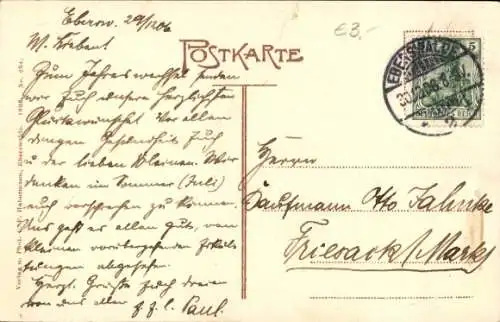 Eberw. 29/12 06
W. Liebent
€3,-
POSTKARTE
5
EBERSWALDE
30.12.06. 8-9
Zum Jahreswechsel senden
wir Euch unsere herzlichsten
Glückwünsche. Vor allen
dingen Gesundheit Euch
u. der lieben Kleinen. Wir
denken im Sommer (Juli)
auch vorsprechen zu können.
Uns geht es allen gut, von
kleinen vorübergehenden
abgesehen.
Herzl. Grüße Euch dreien
von uns allen
Paul.
Herrn
Kaufmann Otto Jahnke
Friesack (Mark)
Verlag u. Phot.
Eberswalde. 1906.